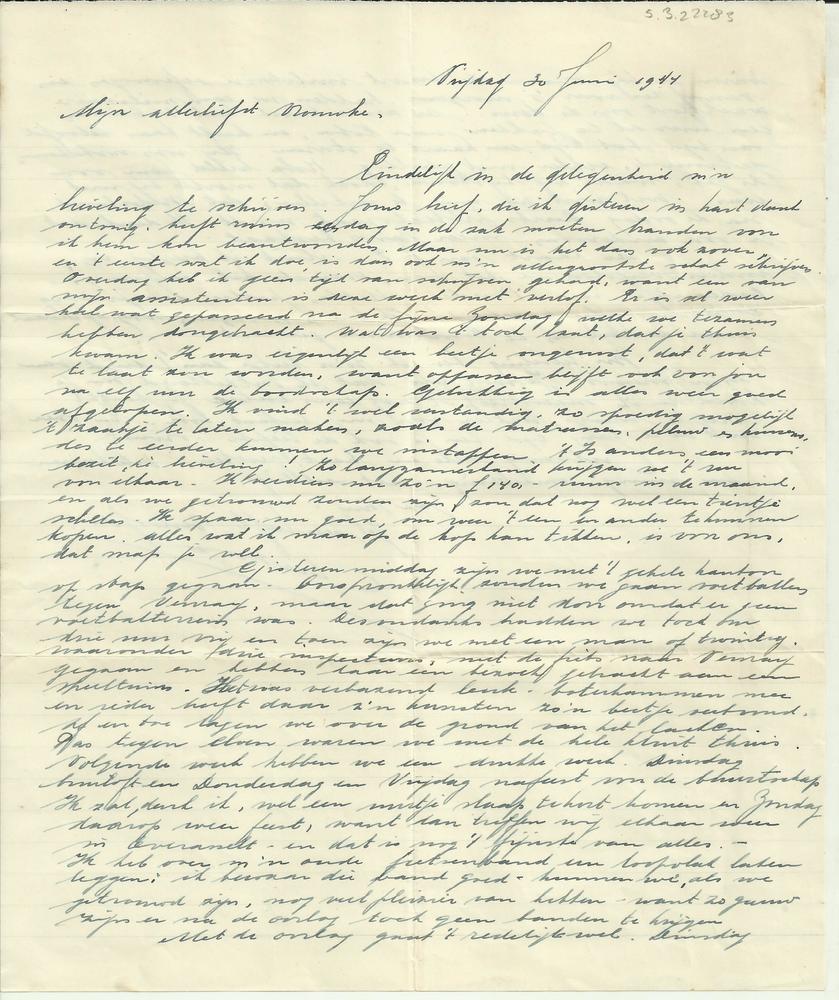 S.3.22283
Vrijdag 30 Juni 1944
Mijn allerliefst Vrouwke.
Eindelijk in de gelegenheid m'n
lieveling te schrijven. Jouw brief, die ik gisteren in hart dank
ontving, heeft ruim eendag in de zak moeten branden voor
ik hem kon beantwoorden. Maar nu is het dan ook zoover,
en 't eerste wat ik doe is dan ook m'n allergrootste schat schrijven.
Overdag heb ik geen tijd van schrijven gehad, want een van
mijn assistenten is deze week met verlof. Er is al weer
heel wat gepasseerd na de fijne Zondag, welke we tezamen
hebben doorgebracht. Wat was 't toch laat, dat je thuis
kwam. Ik was eigenlijk een beetje ongerust, dat 't wat
te laat zou worden, want oppassen blijft ook voor jou
na elf uur de boodschap. Gelukkig is alles weer goed
afgeloopen. Ik vind 't wel verstandig, zo spoedig mogelijk
't zaakje te laten maken, zooals de matrassen, peluw en kussens,
des te eerder kunnen we instappen. 't Is anders een mooi
bezit, hè lieveling! Zo langzamerhand krijgen we 't nu
voor elkaar. Ik verdien nu zo'n ƒ 140,- ruim in de maand,
en als we getrouwd zouden zijn, zou dat nog wel een tientje
schelen. Ik spaar nu goed, om weer 't een en ander te kunnen
kopen. alles wat ik maar op de kop kan tikken, is voor ons,
dat snap je wel.
Gisteren middag zijn we met 't gehele kantoor
op stap gegaan. Oorspronkelijk zouden we gaan voetballen
tegen Venray, maar dat ging niet door omdat er geen
voetbalterrein was. Desondanks hadden we toch om
drie uur vrij en toen zijn we met een man of twintig,
waaronder drie inspecteurs, met de fiets naar Venray
gegaan en hebben daar een bezoek gebracht aan een
speeltuin. Het was verbazend leuk - boterhammen mee
en ieder heeft daar z'n kunsten zo'n beetje vertoond.
Af en toe lagen we over de grond van het lachen.
Pas tegen elven waren we met de hele kluit thuis.
Volgende week hebben we een drukke week. Dinsdag
bruiloft en Donderdag en Vrijdag nafeest van de buurtschap
Ik zal, denk ik, wel een uurtje slaap tekort komen en Zondag
daarop weer feest, want dan treffen wij elkaar weer
in Overasselt - en dat is nog 't fijnste van alles. -
Ik heb over m'n oude fietsenband een loopvlak laten
leggen: ik bewaar die band goed - kunnen we, als we
getrouwd zijn, nog veel plezier van hebben - want zo gauw
zijn er na de oorlog toch geen banden te krijgen
Met de oorlog gaat 't redelijk wel. Dinsdag